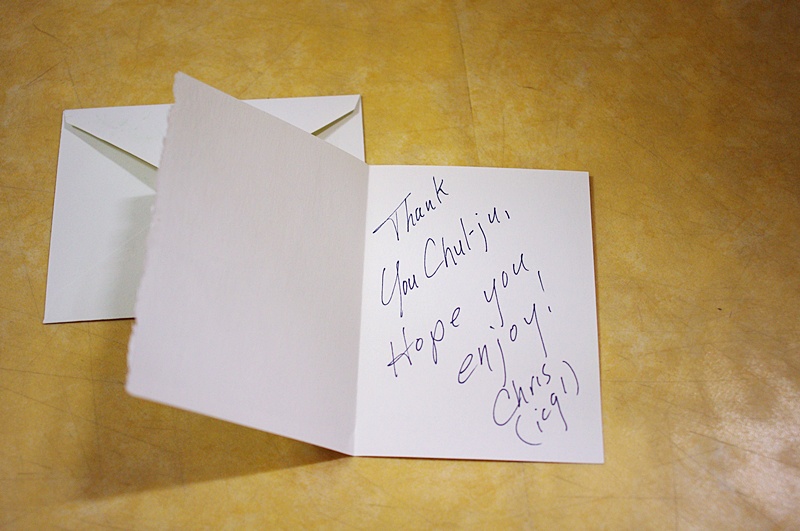 Thank
You Chul-ju,
Hope you
enjoy!
Chris
(icg1)